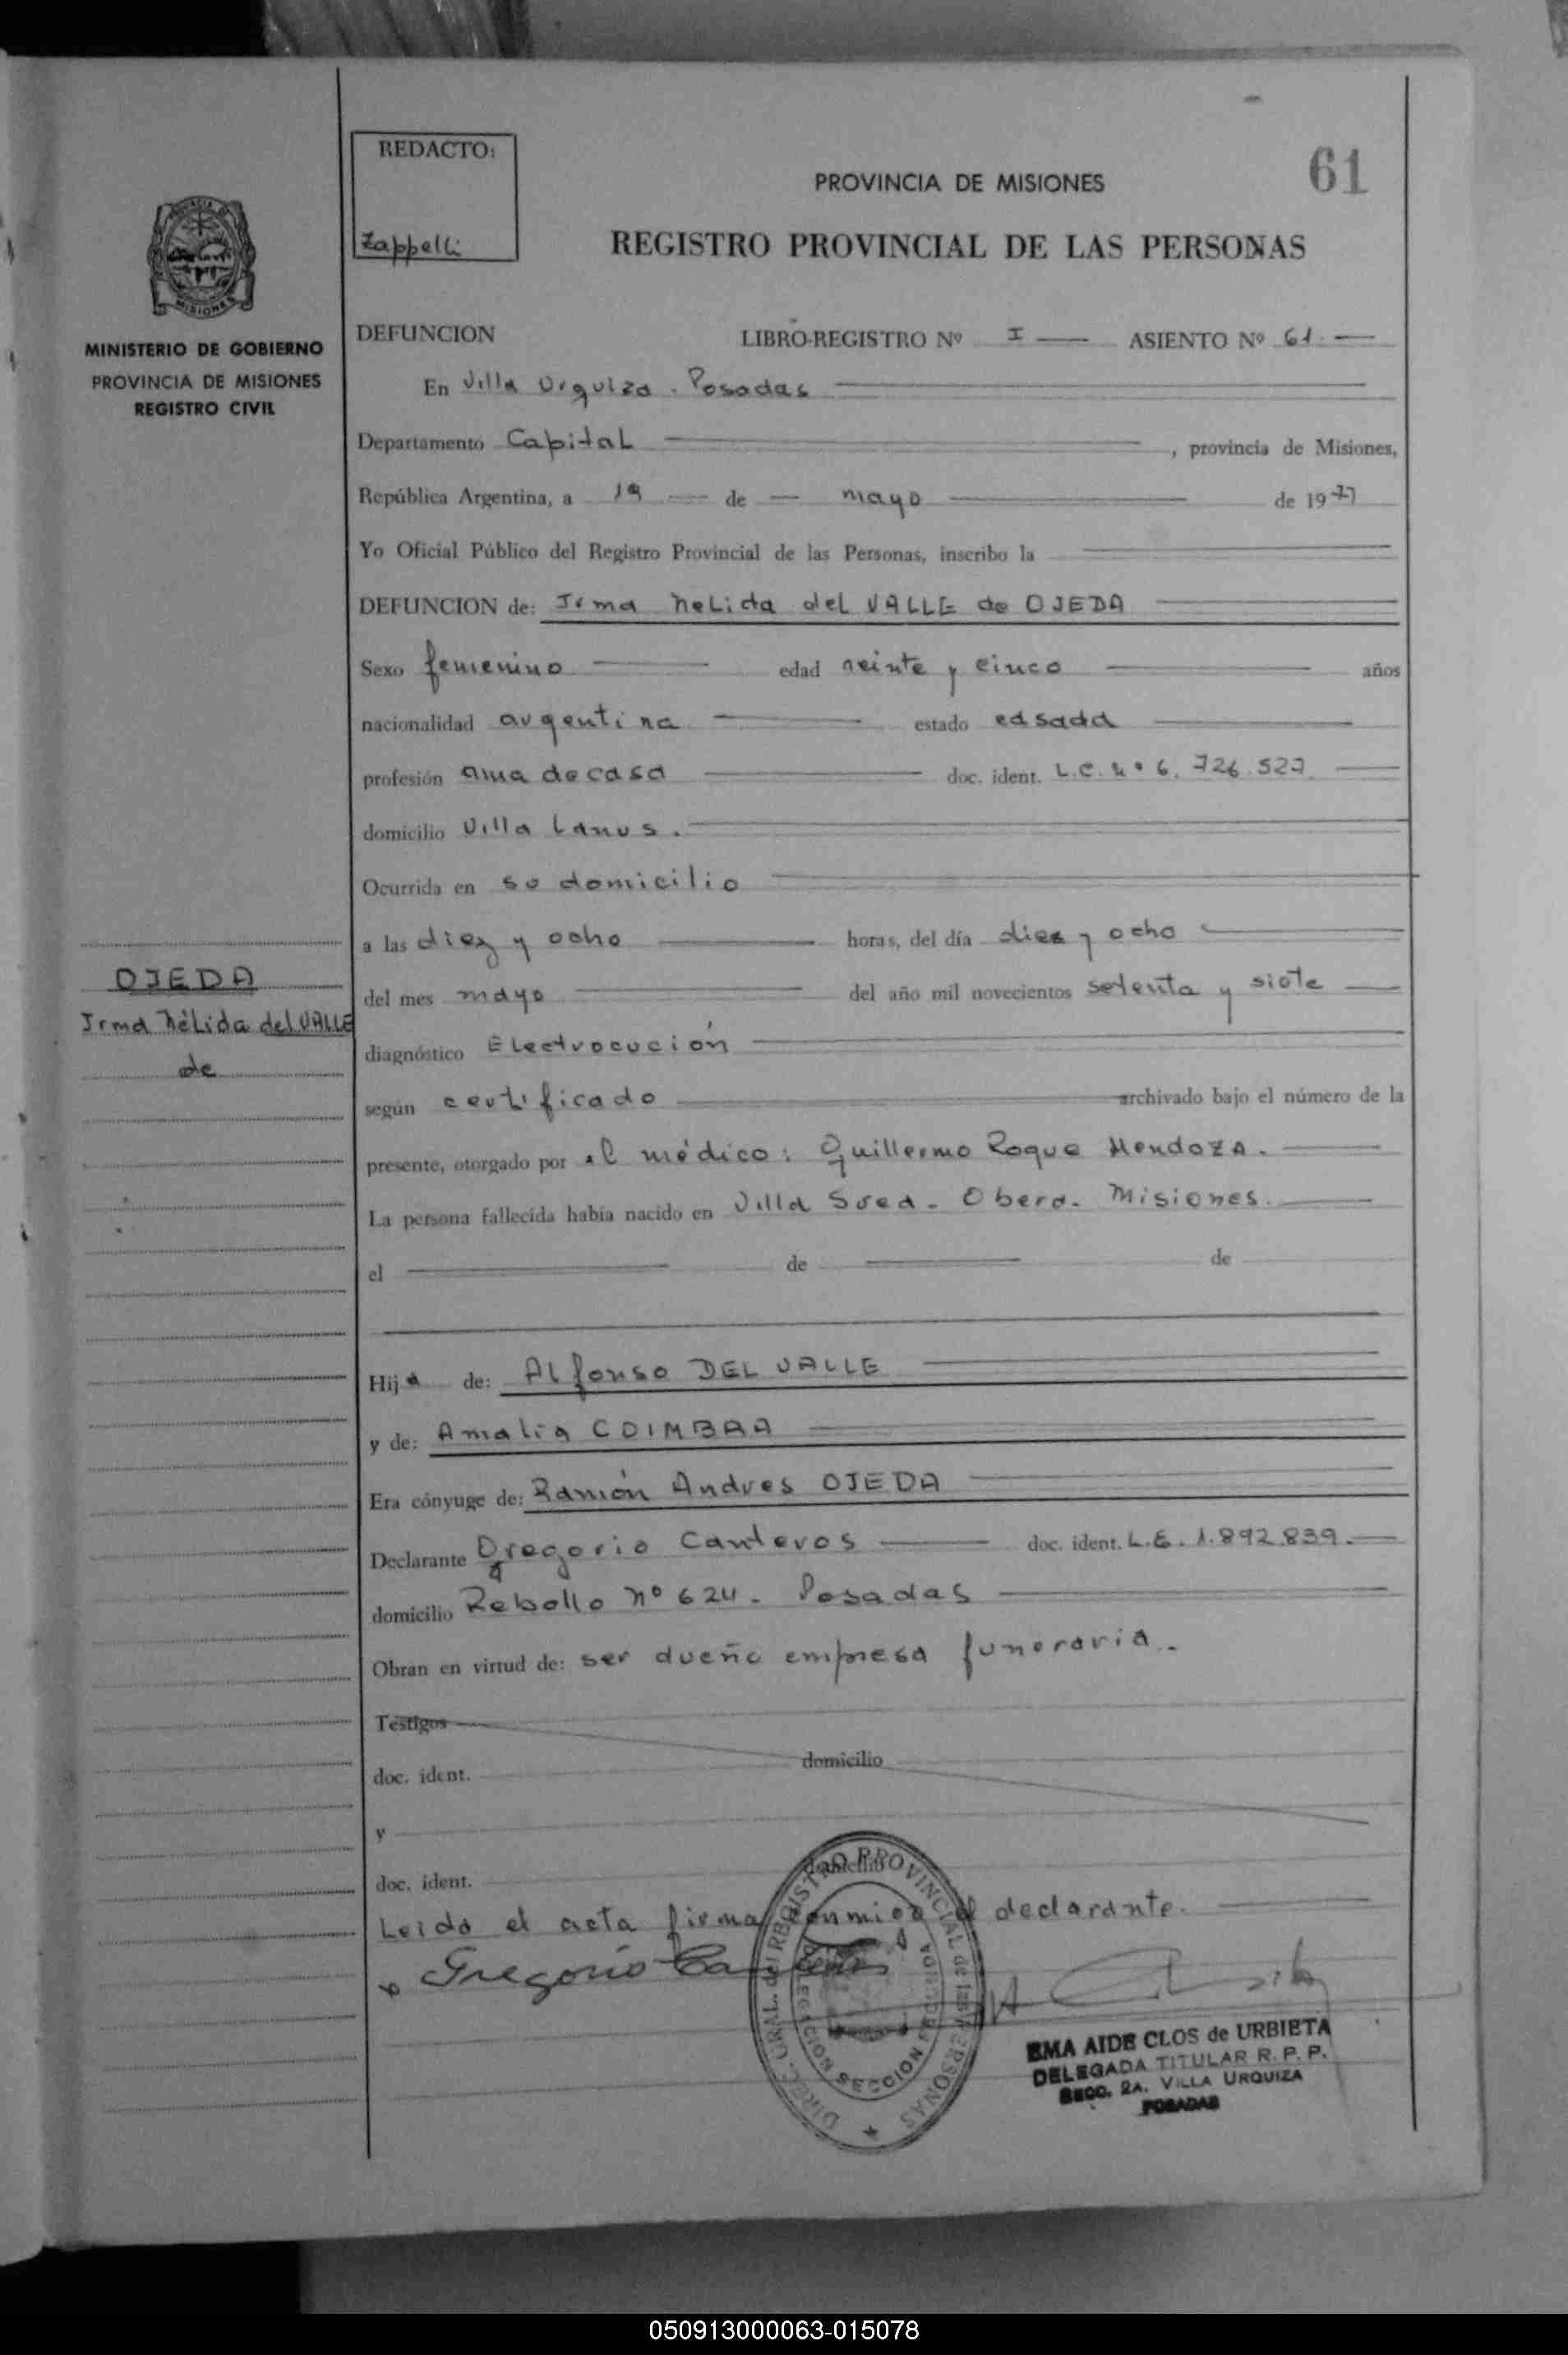 61
REDACTO:
Zappelli
PROVINCIA DE MISIONES
REGISTRO PROVINCIAL DE LAS PERSONAS
MISIONES
MINISTERIO DE GOBIERNO
PROVINCIA DE MISIONES
REGISTRO CIVIL
DEFUNCION LIBRO-REGISTRO Nº I ASIENTO Nº 61
En Villa Urquiza - Posadas
Departamento Capital , provincia de Misiones,
República Argentina, a 19 de mayo de 1977
Yo Oficial Público del Registro Provincial de las Personas, inscribo la
DEFUNCION de: Irma nelida del VALLE de OJEDA
Sexo femenino edad veinte y cinco años
nacionalidad argentina estado casada
profesión ama de casa doc. ident. L.C. nº 6.726.527.
domicilio Villa Lanus.
Ocurrida en su domicilio
a las diez y ocho horas, del día diez y ocho
del mes mayo del año mil novecientos setenta y siete
diagnóstico Electrocución
según certificado archivado bajo el número de la
presente, otorgado por el médico: Guillermo Roque Mendoza.
La persona fallecida había nacido en Villa Sued - Obera - Misiones.
el de de
Hija de: Alfonso DEL VALLE
y de: Amalia COIMBRA
Era cónyuge de: Ramón Andres OJEDA
Declarante Gregorio Canteros doc. ident. L.E. 1.892.839.
domicilio Rebollo nº 624 - Posadas
Obran en virtud de: ser dueño empresa funeraria.-
Testigos
doc. ident. domicilio
y
doc. ident. domicilio
Leida el acta firma conmigo el declarante.
Gregorio Canteros
OJEDA
Irma nélida del VALLE
de
DIREC. GRAL. del REGISTRO PROVINCIAL de las PERSONAS
DELEGACION SECCION SEGUNDA
EMA AIDE CLOS de URBIETA
DELEGADA TITULAR R. P. P.
SECC. 2A. VILLA URQUIZA
POSADAS
050913000063-015078